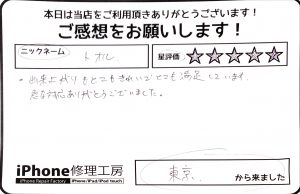 本日は当店をご利用頂きありがとうございます!
ご感想をお願いします!
ニックネーム トオル 星評価 ★★★★★
・出来上がりもとてもきれいでとても満足しています。
ありがとうございました。
iPhone修理工房
iPhone Repair Factory iPhone/iPad/iPod touch
東京 から来ました